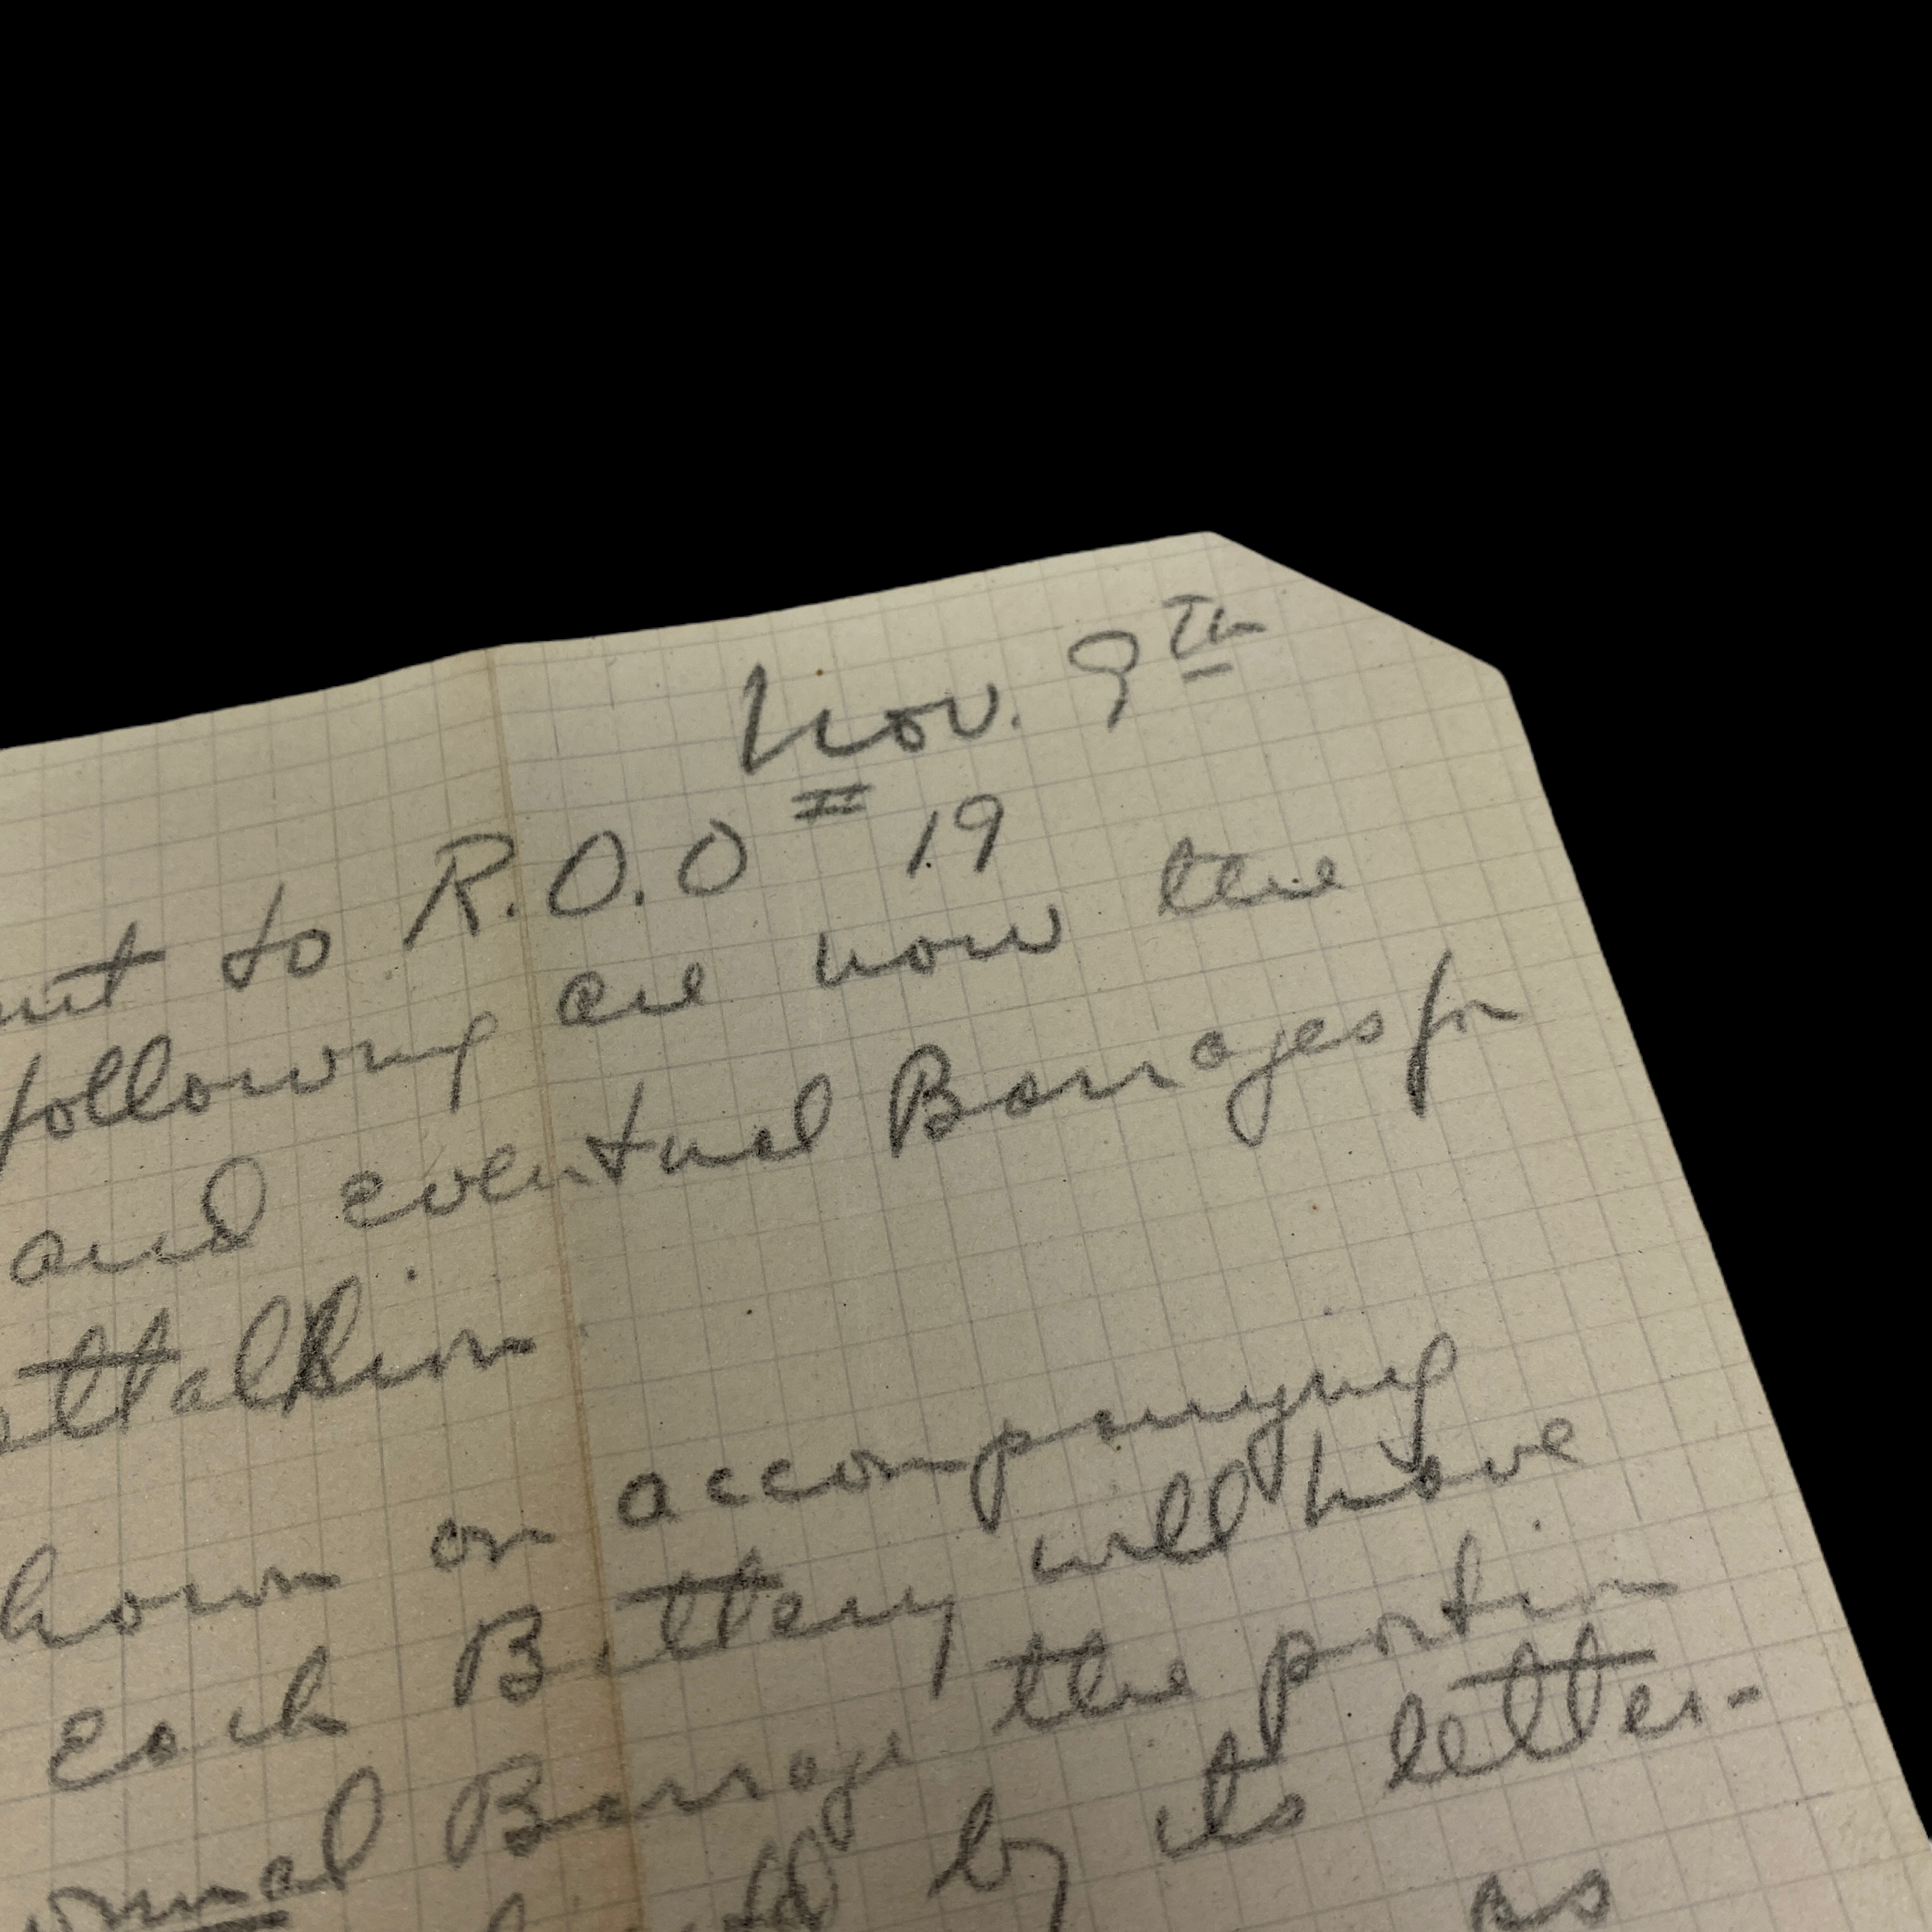 Nov. 9th
to R.O.O # 19
following are now the
and eventual Barrages for
on accompanying
Each Battery will have
Barrage the portin
by its letter-
As